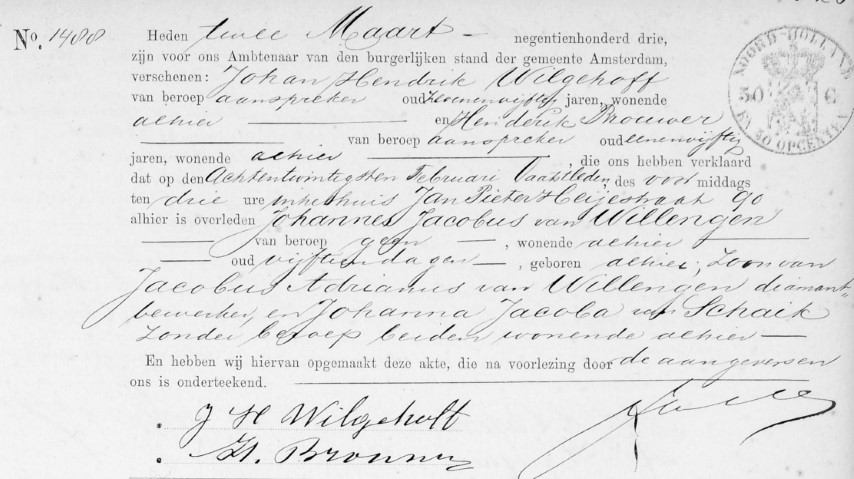 No. 1488
Heden twee Maart negentienhonderd drie,
zijn voor ons Ambtenaar van den burgerlijken stand der gemeente Amsterdam,
verschenen: Johan Hendrik Wilgehoff
van beroep aanspreker oud zevenenvijftig jaren, wonende
alhier en Henderik Brouwer
van beroep aanspreker oud eenenvijftig
jaren, wonende alhier, die ons hebben verklaard
dat op den Achtentwintigsten Februari laatstleden, des voor middags
ten drie ure in het huis Jan Pieter Heijestraat 90
alhier is overleden Johannes Jacobus van Willengen
van beroep geen, wonende alhier
oud vijftien dagen, geboren alhier; zoon van
Jacobus Adrianus van Willengen diamant"
bewerker, en Johanna Jacoba van Schaik
zonder beroep beiden wonende alhier
En hebben wij hiervan opgemaakt deze akte, die na voorlezing door de aangeversen
ons is onderteekend.
J H Wilgehoff
H. Brouwer
NOORD-HOLLAND
50 C
EN 50 OPCENTEN